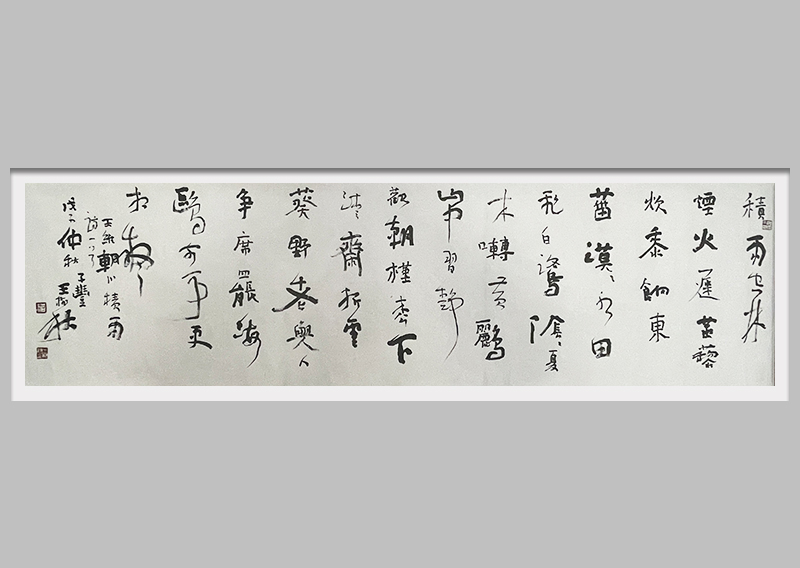 積雨空林
煙火遲蒸藜
炊黍餉東
菑漠〻水田
飛白鷺陰〻夏
木囀黃鸝
山中習靜
觀朝槿松下
清齋折露
葵野老與人
爭席罷海
鷗何事更
相疑
王維輞川積雨
詩一首
戊子仲秋